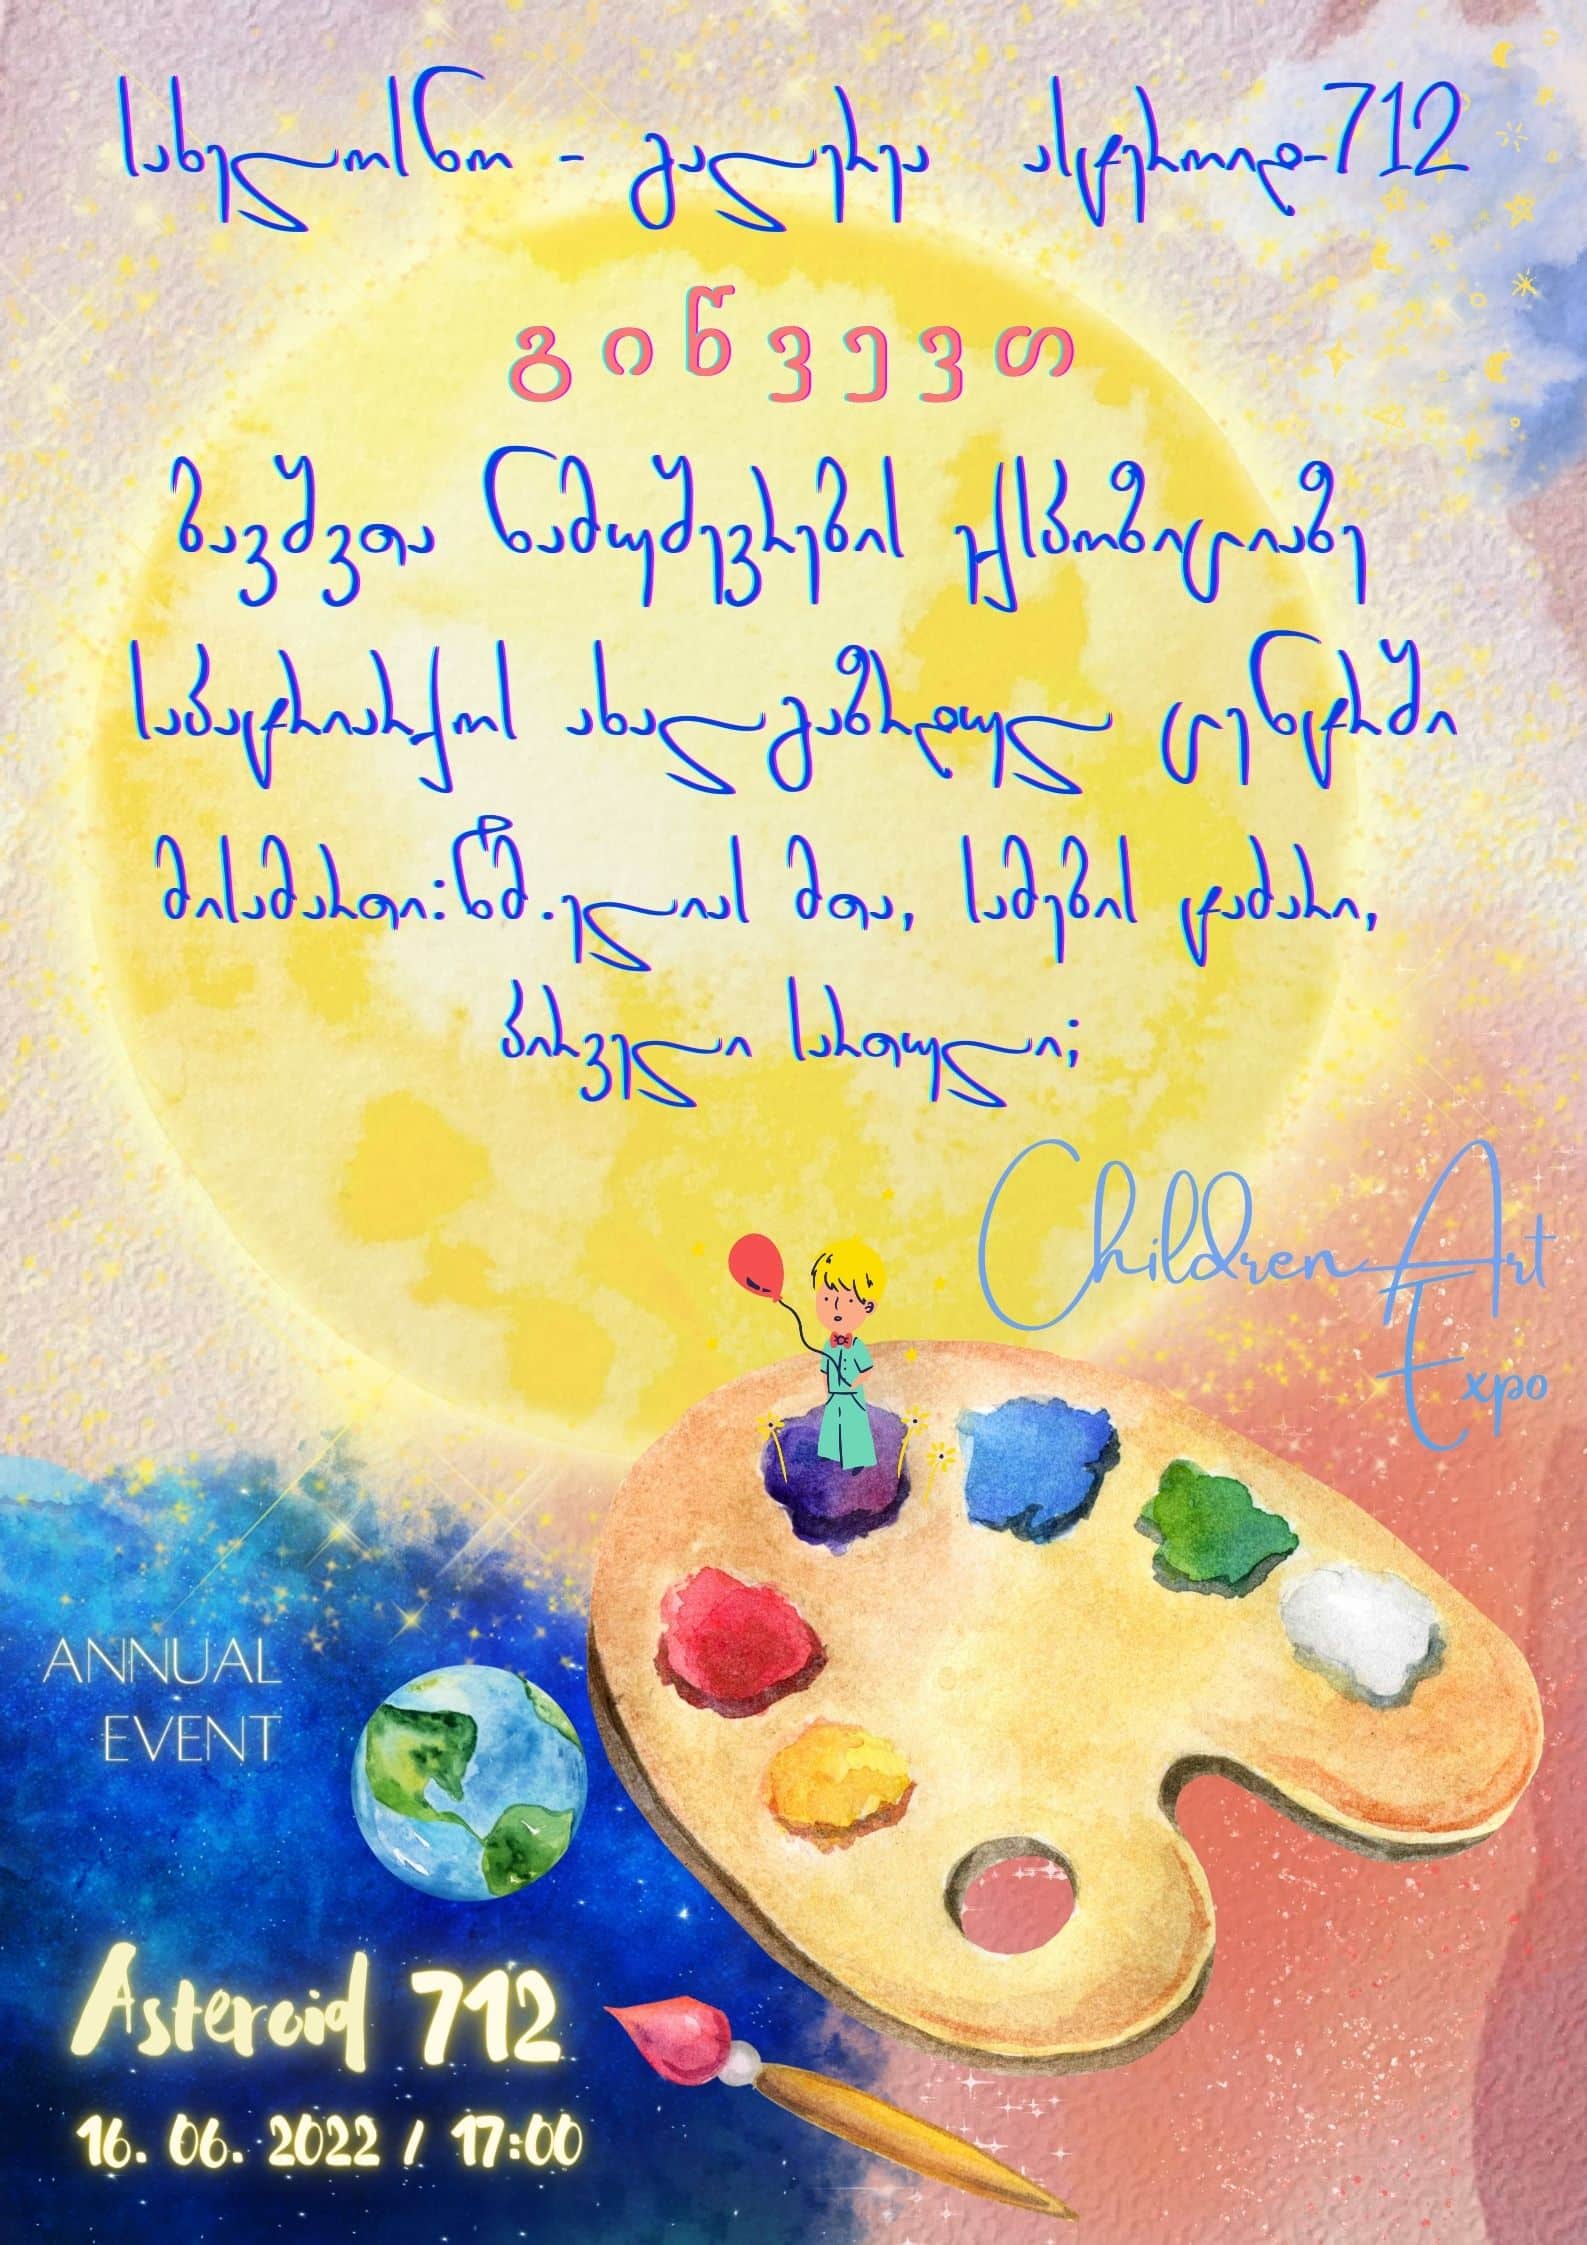 სახელოსნო - გალერეა ასტეროიდ-712
გიწვევთ
ბავშვთა ნამუშევრების ექსპოზიციაზე
საპატრიარქოს ახალგაზრდულ ცენტრში
მისამართი:წმ.ელიას მთა, სამების ტაძარი,
პირველი სართული;
Children Art
Expo
ANNUAL
EVENT
Asteroid 712
16. 06. 2022 / 17:00